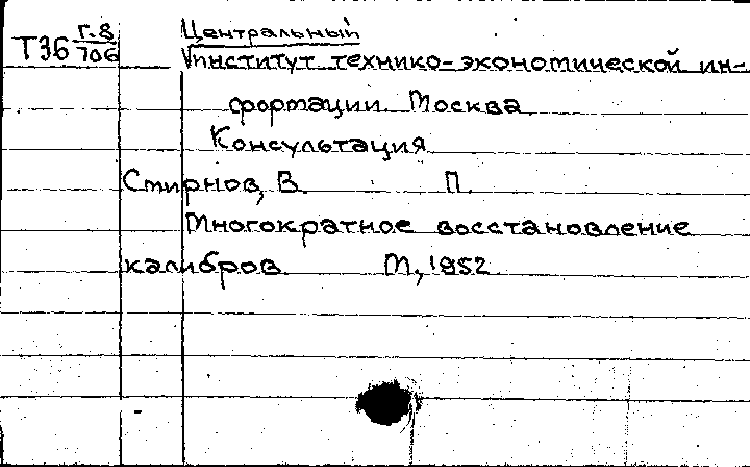 Т36 Г-8/706 Центральный
Институт технико-экономической ин-
формации. Москва
Консультация
Смирнов, В. П.
Многократное восстановление
калибров. М, 1952